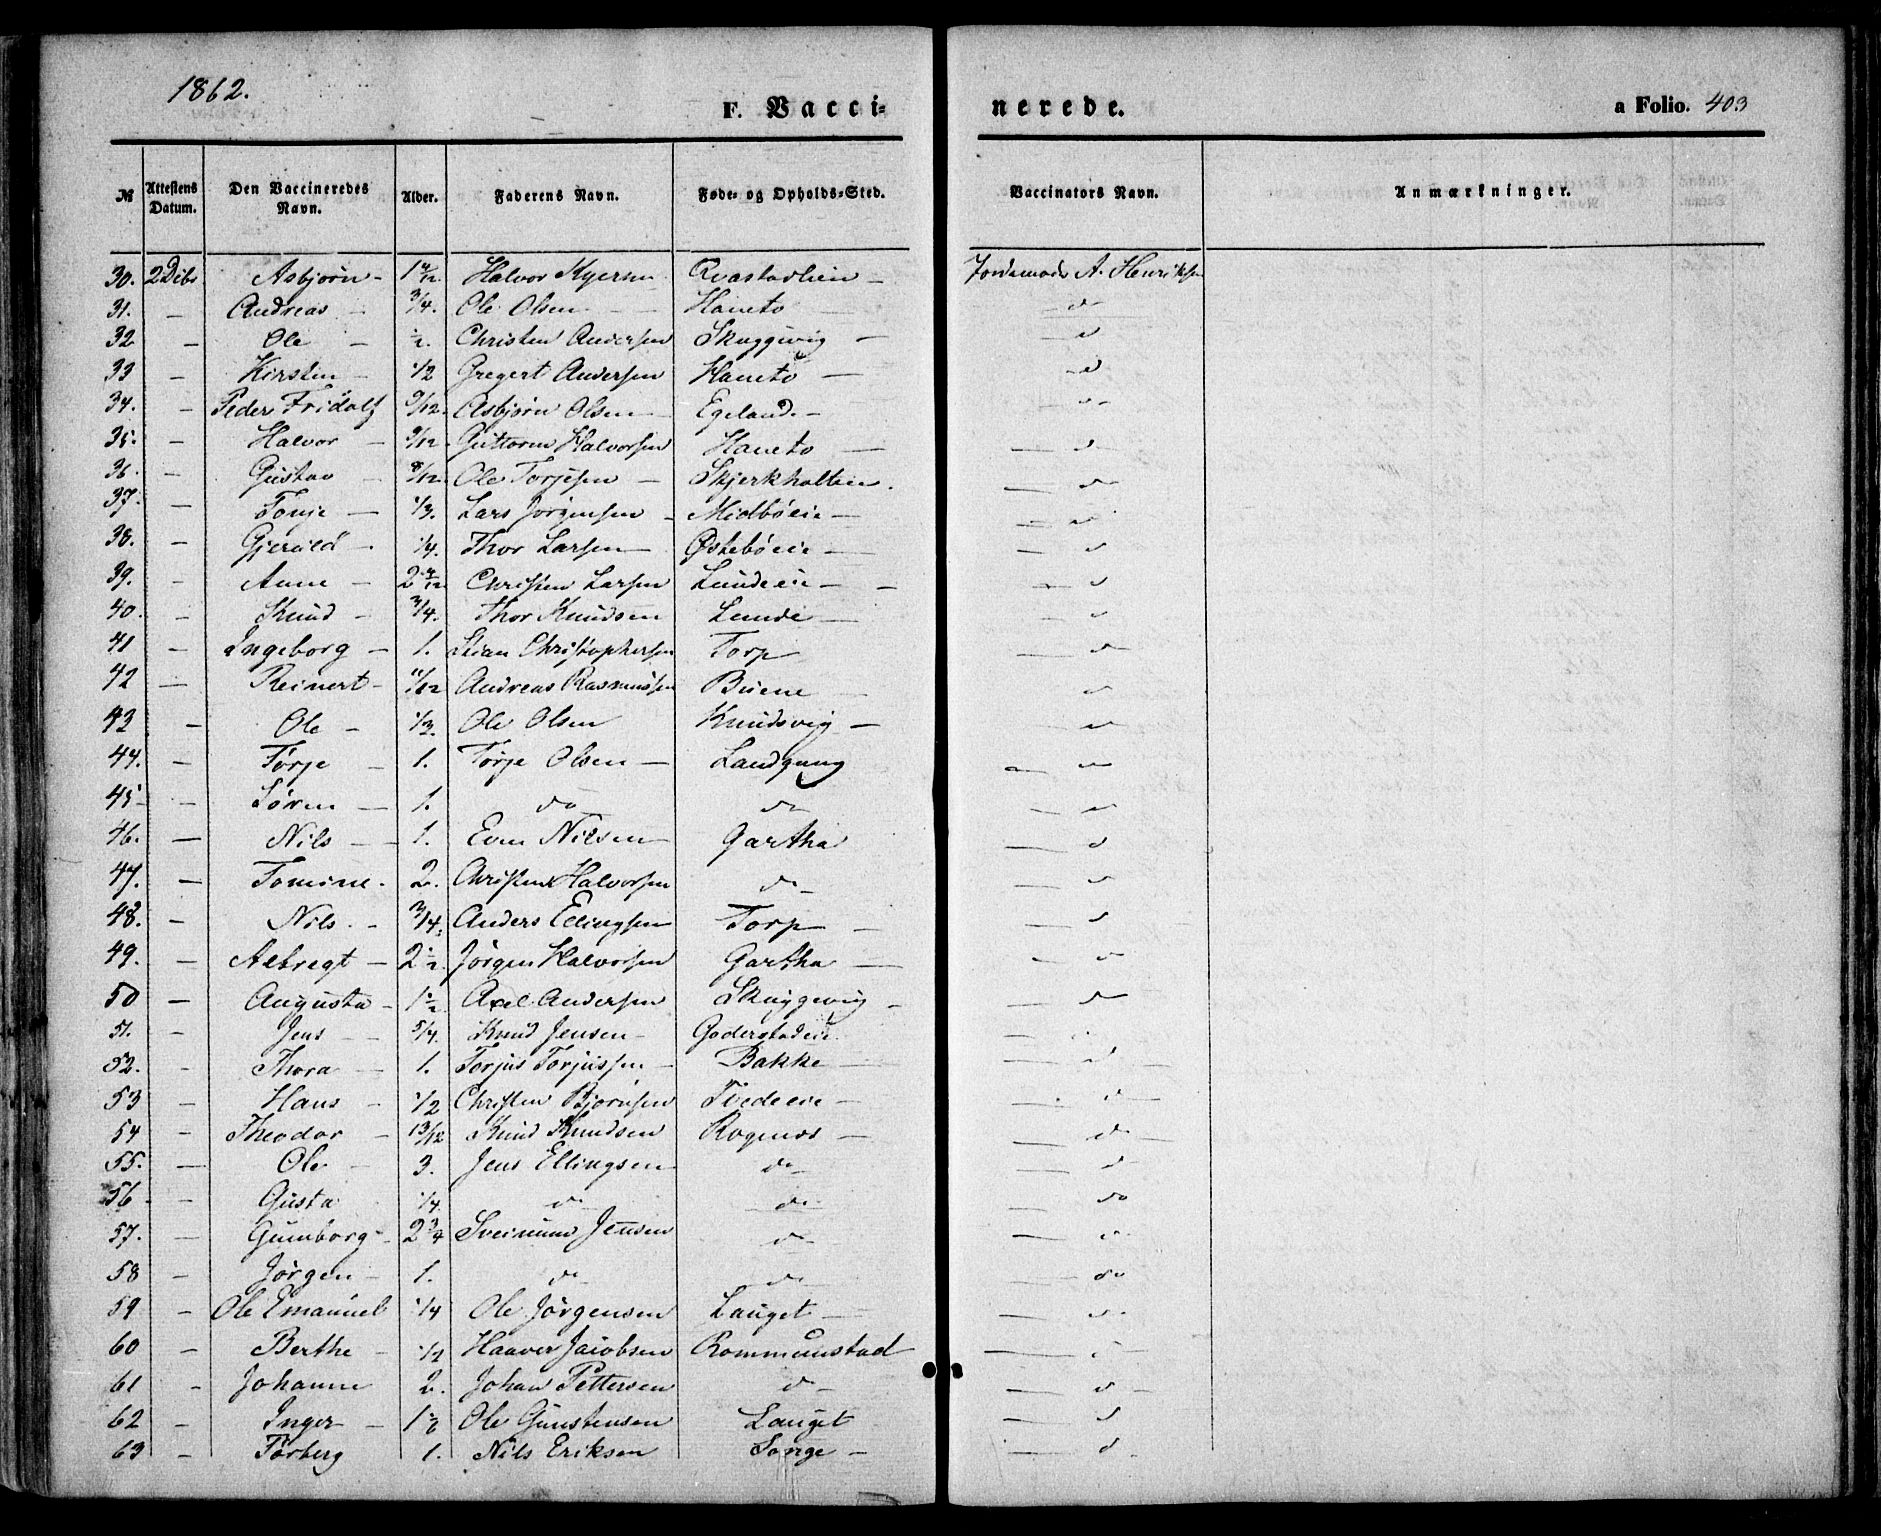 1862.
F. Vacci-
nerede.
a Folio. 403
№ Attestens Datum. Den Vaccineredes Navn. Alder. Faderens Navn. Føde- og Opholds-Sted. Vaccinators Navn. Anmærkninger.
30. 2 Dcbr Asbjørn - Halvor Qvastadheien Jordemoder A. Henriksen
31. - Andreas - 3/4. Ole Olsen - Haneto - do
32 - Ole - 1/2. Christen Andersen Skuggevig - do
33 - Kirstin - 1/2 Gregert Andersen Haneto - do
34. - Peder Fridolf 9/12. Asbjørn Olsen - Egeland. - do
35. - Halvor - 9/12 Guttorm Halvorsen Haneto - do
36. - Gustav - 8/12. Ole Torjesen - Skjerkholten. - do
37. - Tonje - 1/3. Lars Jørgensen - Midtbøeie - do
38. - Gjeruld - 1/4. Thor Larsen - Østebøeie - do
39. - Anne - Christen Larsen Lundeeie - do
40. - Knud - 3/4. Thor Knudsen Lunde - do
41 - Ingeborg - 1. Stian Christophersen Torp - do
42 - Reinert - 11/12 Andreas Rasmussen Buene - do
43 - Ole - Ole Olsen Knudsvig - do
44. - Tørje - 1. Tørje Olsen - Landgang - do
45 - Søren - 1. do do - do
46. - Nils - 1. Even Nilsen Gartha - do
47. - Tomine. 2. Christen Halvorsen do - do
48. - Nils. - 3/4. Anders Ellingsen Torp - do
49. - Albregt - 2 1/2 Jørgen Halvorsen Gartha - do
50 - Augusta - 1 1/2 Axel Andersen Skuggevig - do
51. - Jens - 5/4. Knud Jensen - Goderstadeie. -
52. - Thora - 1. Torjus Torjussen - Bakke - do
53 - Hans - 1/2 Christen Bjørnsen Tvedeeie - do
54 - Theodor - 13/12 Knud Knudsen Rognes - do
55. - Ole - 3. Jens Ellingsen do - do
56 - Gusta 1/4 do do - do
57. - Gumborg - 2 3/4 Sveinung Jensen do - do
58 - Jørgen - 1. do do - do
59 - Ole Emanuel 1/4 Ole Jørgensen Lauget - do
60 - Berthe - 1/2 Haaver Jacobsen Rommunstad - do
61 - Johanne 2. Johan Pettersen do - do
62 - Inger - Ole Gunstensen Lauget - do
63 - Torberg 1. Nils Eriksen Songe - do